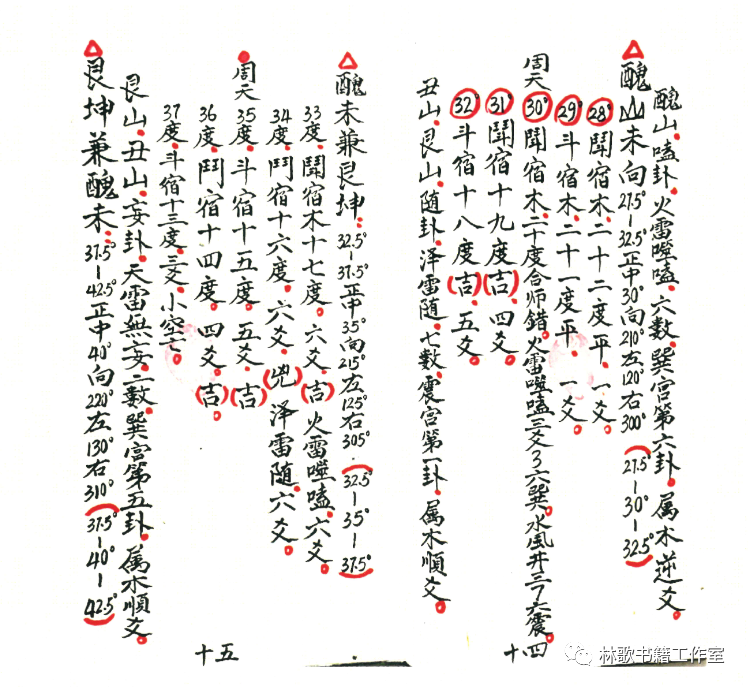 醜山.嗑卦.火雷噬嗑.六数.巽宫第六卦.属木逆爻.
醜山未向27.5°-32.5°正中30°向210°左120°右300°(27.5°-30°-32.5°)
28°鬪宿木.二十二度平.一爻.
29°斗宿木.二十一度平.一爻.
周天30°鬪宿木.二十度合师錯.火雷噬嗑三爻了六巽.水風井三了六震.
31°鬪宿十九度(吉).四爻.
32°斗宿十八度(吉).五爻.
丑山.艮山.随卦.泽雷随.七数.震宫第一卦.属木順爻.
十.四
醜未兼艮坤.32.5°-37.5°正中35°向215°左125°右305°.(32.5°-35°-37.5°)
33度.鬪宿木十七度.六爻.(吉)火雷噬嗑.六爻.
34度.鬥宿十六度.六爻.(兇)泽雷随.六爻.
周天35度.斗宿十五度.五爻.(吉)
36度.鬥宿十四度.四爻.(吉).
37度.斗宿十三度.三爻.小空亡.
艮山.丑山.妄卦.天雷無妄.二数.巽宫第五卦.属木順爻.
艮坤兼醜未.37.5°-42.5°正中40°向220°左130°右310°(37.5°-40°-42.5°)
十五
林歌书籍工作室